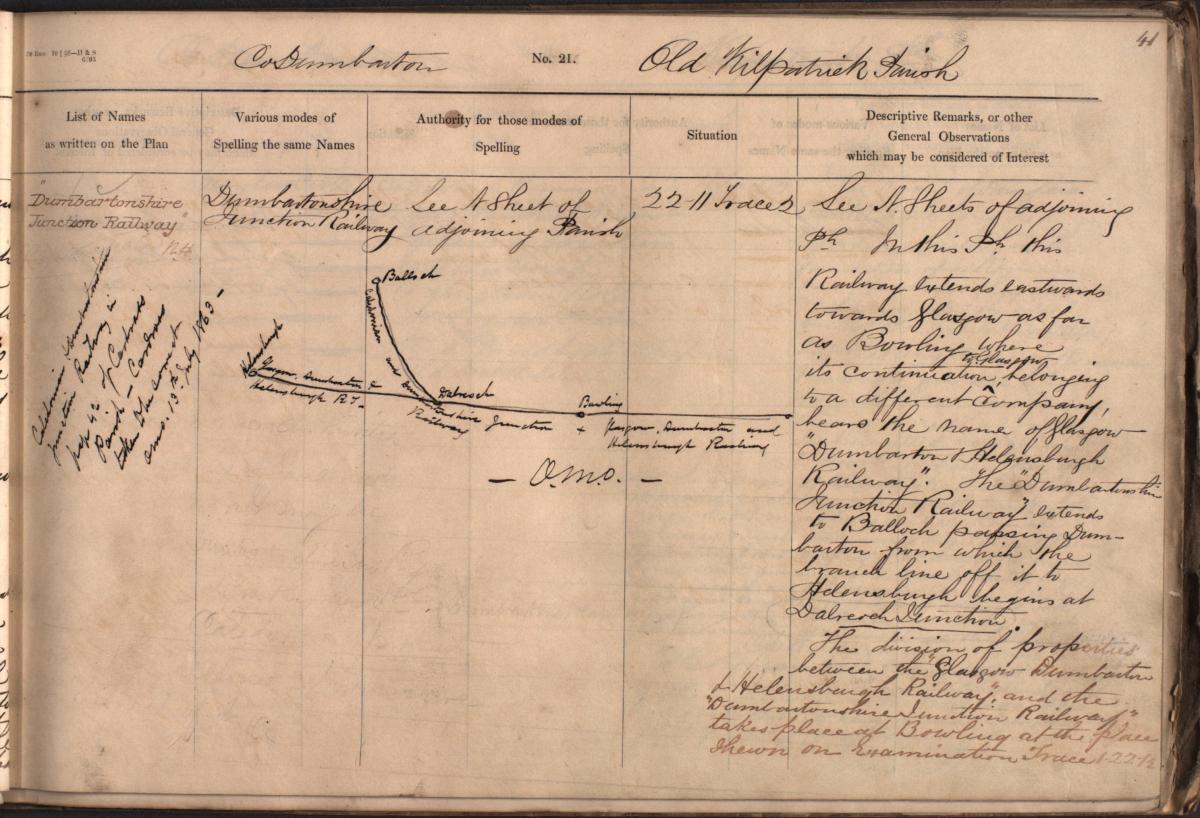 41
Co Dumbarton No. 21. Old Kilpatrick Parish
List of Names
as written on the Plan
Various modes of
Spelling the same Names
Authority for those modes of
Spelling
Situation
Descriptive Remarks, or other
General Observations
which may be considered of Interest
"Dumbartonshire
Junction Railway"
Dumbartonshire
Junction Railway
See N Sheet of
adjoining Parish
22-11 Trace 2
See N. Sheets of adjoining
Ph In this Ph. this
Railway extends eastwards
towards Glasgow as far
as Bowling where
its continuation, to Glasgow belonging
to a different Company,
bears the name of Glasgow
"Dumbarton & Helensburgh
Railway". The "Dumbartonshire
Junction Railway" extends
to Balloch passing Dum-
barton from which the
branch line off it to
Helensburgh begins at
Dalreoch Junction.
The division of properties
between the "Glasgow Dumbarton
& Helensburgh Railway", and the
"Dumbartonshire Junction Railway"
takes place at Bowling at the place
shewn on Examination Trace 1-22
Caledonian & Dumbartonshire
Junction Railway in
page 42 of
Parish - Cardross
taken
O.M.O. 13th July 1863 -
Balloch
Caledonian and Dumbartonshire Junction
Railway
Helensburgh
Glasgow, Dumbarton &
Helensburgh Ry.
Dalreoch
Bowling
+ Glasgow, Dumbarton and
Helensburgh Railway
- O.M.O. -